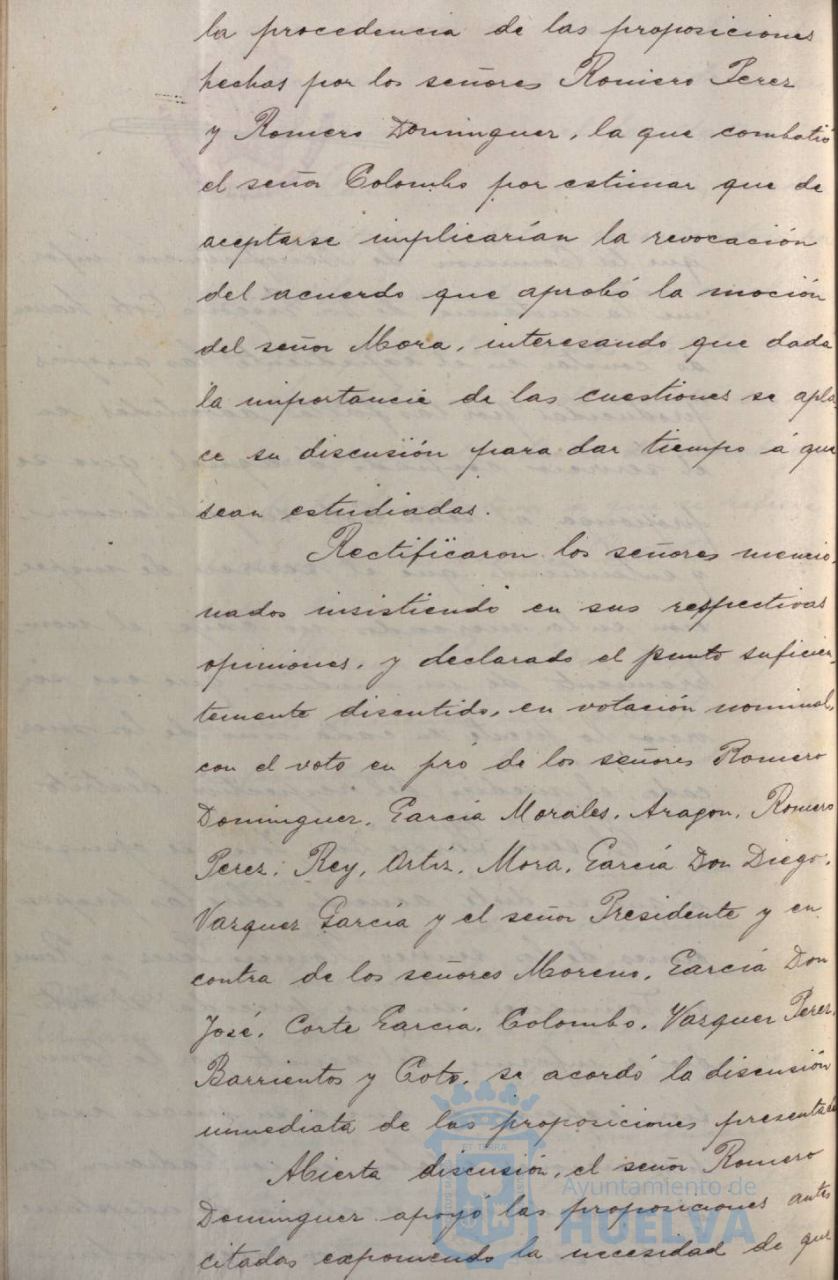 la procedencia de las proposiciones
hechas por los señores Romero Perez
y Romero Dominguez, la que combatió
el señor Colombo por estimar que de
aceptarse implicarían la revocación
del acuerdo que aprobó la moción
del señor Mora, interesando que dada
la importancia de las cuestiones se apla
ce su discusión para dar tiempo á que
sean estudiadas.
Rectificaron los señores mencio-
nados insistiendo en sus respectivas
opiniones, y declarado el punto suficien-
temente discutido, en votación nominal,
con el voto en pró de los señores Romero
Dominguez, García Morales, Aragon, Romero
Perez, Rey, Ortiz, Mora, García Don Diego,
Vazquez García y el señor Presidente y en
contra de los señores Moreno, García Don
José, Corte García, Colombo, Vazquez Perez,
Barrientos y Coto, se acordó la discusión
inmediata de las proposiciones presentadas
Abierta discusión, el señor Romero
Dominguez apoyó las proposiciones antes
citadas exponiendo la necesidad de que
Ayuntamiento de
HUELVA